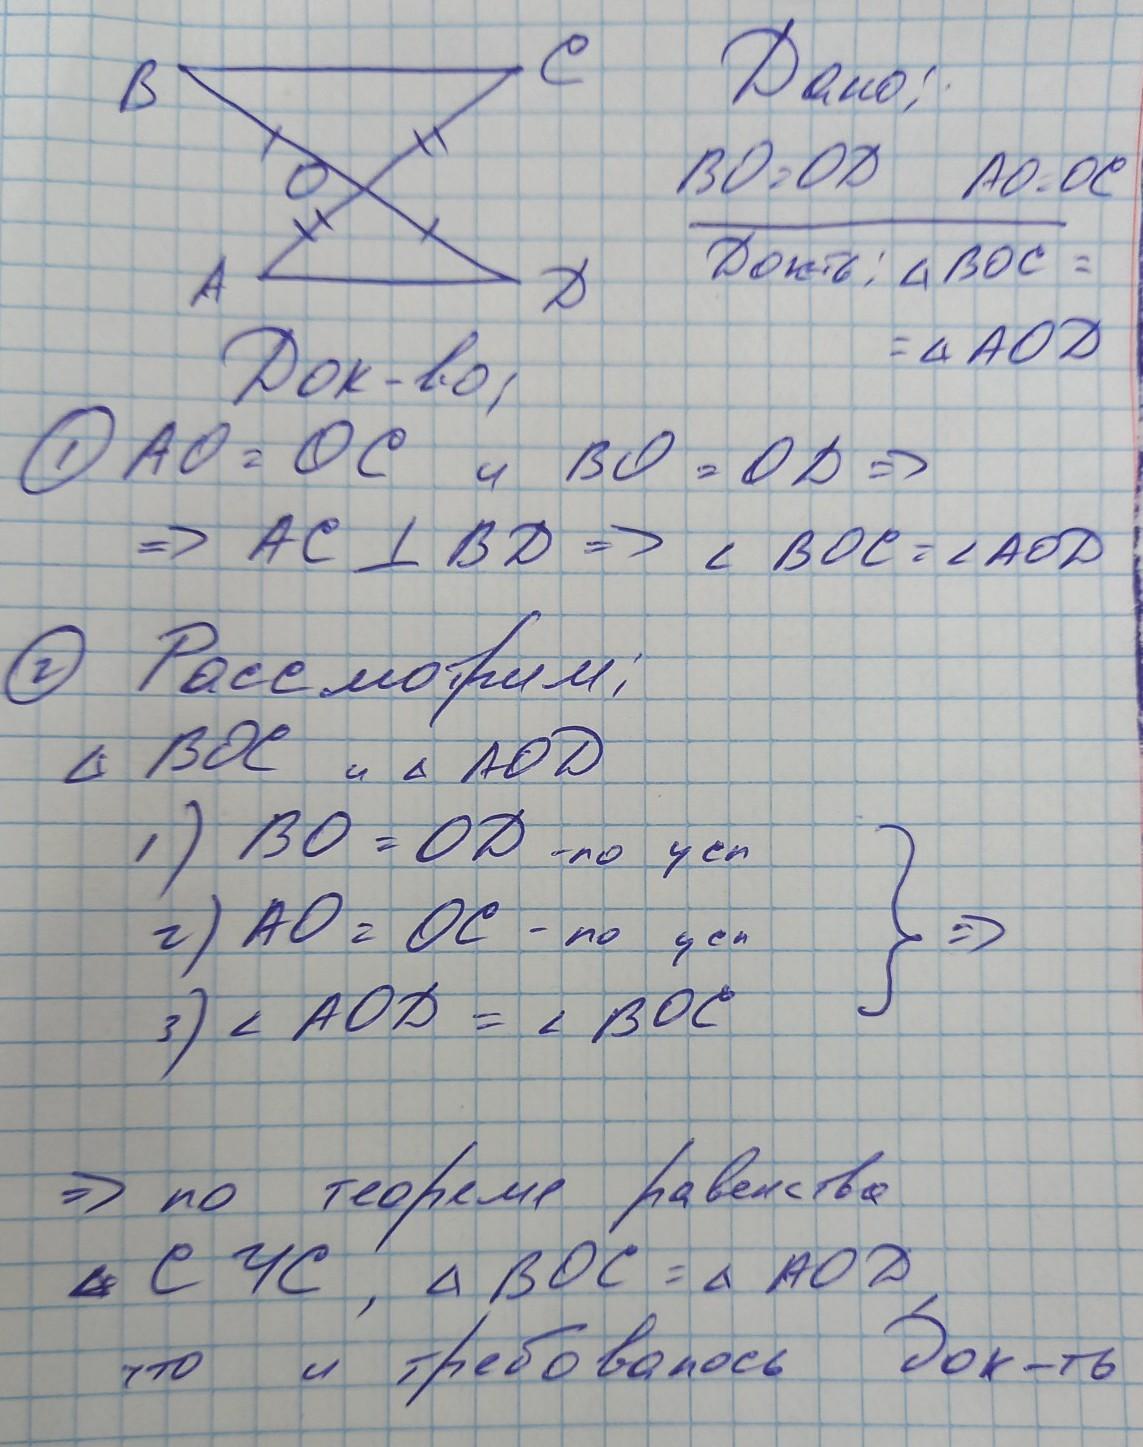 B
C
O
A
D
Дано:
BO=OD AO=OC
Док-ть: △BOC =
= △AOD
Док-во:
① AO = OC и BO = OD =>
=> AC ⊥ BD => ∠ BOC = ∠ AOD
② Рассмотрим:
△ BOC и △ AOD
1) BO = OD - по усл
2) AO = OC - по усл
3) ∠ AOD = ∠ BOC
} =>
=> по теореме равенства
△ СУС, △ BOC = △ AOD
что и требовалось док-ть